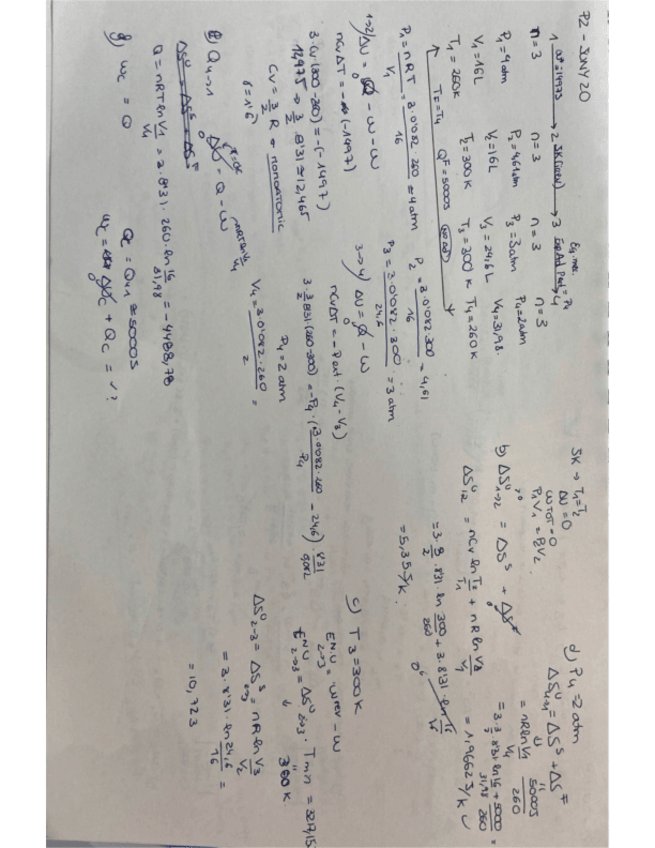 P2 - JUNY 20
1 → 2 SK (irrev) → 3 Exp Ad Pext = P4 → 4
n = 3 n = 3 n = 3 n = 3
P1 = 4 atm P2 = 4,61 atm P3 = 3 atm P4 = 2 atm
V1 = 16L V2 = 16L V3 = 24,6L V4 = 31,98
T1 = 260K T2 = 300K T3 = 300K T4 = 260K
TF = T4 QF = 5000J
P1 = nRT/V1 = 3·0'082·260/16 = 4 atm
P2 = 3·0'082·300/16 = 4,61
P3 = 3·0'082·300/24,6 = 3 atm
1→2) ΔU = Q - W - W
nCvΔT = -(-1497)
3·Cv(300-260) = -(-1497)
12,475 → 3/2 8'31 = 12,465
Cv = 3/2 R → MONOATOMIC
3→4) ΔU = Q - W
nCvΔT = -Pext·(V4-V3)
3·3/2·8'31(260-300) = -P4·(3·0'082·260/P4 - 24,6)·8'31/0,082
P4 = 2 atm
V4 = 3·0'082·260/2 =
Q4→1 ΔU = Q - W
ΔSU = ΔSS + ΔSF
Q = nRT ln V1/V4 = 3·8'31·260·ln 16/31,98 = -4488,78
g) Wc = Q
Qc = Q4→1 = 5000J
Wc = ΔUc + Qc = ✓?
SK → T1 = T2
ΔU = 0
WTOT = 0
P1V1 = P2V2
b) ΔSU 1→2 = ΔSS + ΔSF
ΔSU 12 = nCv ln T2/T1 + nR ln V2/V1
= 3·3/2·8'31·ln 300/260 + 3·8'31·ln
= 5,35 J/K
c) T3 = 300K
ENU 2→3 = Wrev - W
ENU 2→3 = ΔSU 2→3 · Tmin = 3217,15
300K
ΔSU 2→3 = ΔSS 2→3 = nR ln V3/V2
= 3·8'31·ln 24,6/16 =
= 10,723
d) P4 = 2 atm
ΔSU 4→1 = ΔSS + ΔSF
= nR ln V1/V4 5000J/260
= 3·8'31·ln 16/31,98 + 5000/260 =
= 1,9662 J/K ✓